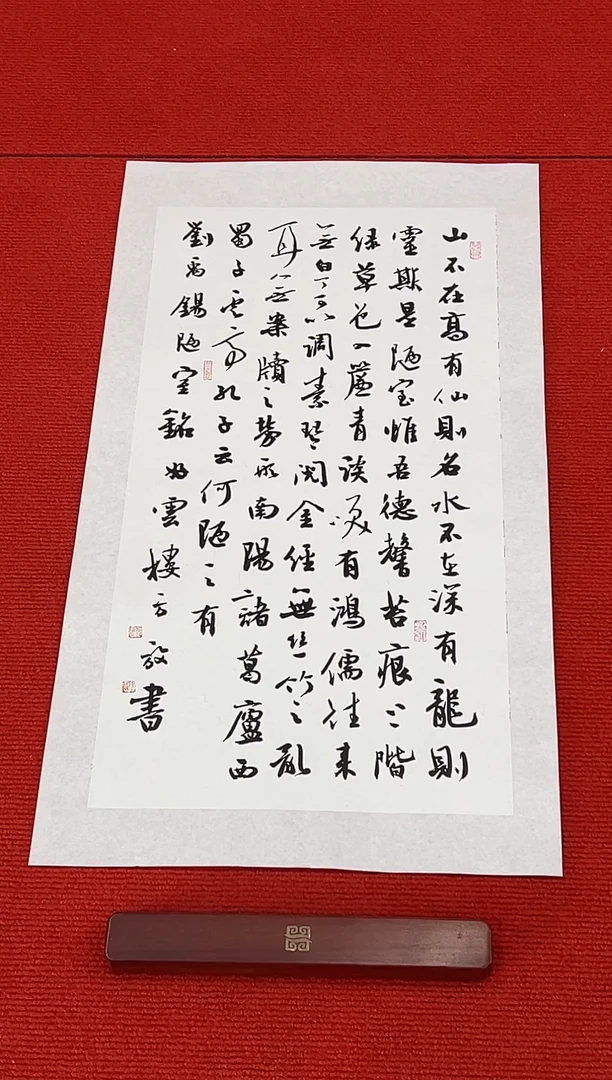 山不在高有仙則名水不在深有龍則
靈斯是陋室惟吾德馨苔痕上階
緑草色入簾青談笑有鴻儒往来
無白丁可以調素琴閱金經無絲竹之亂
耳無案牘之勞形南陽諸葛廬西
蜀子雲亭孔子云何陋之有
劉禹錫陋室銘好雲樓方書